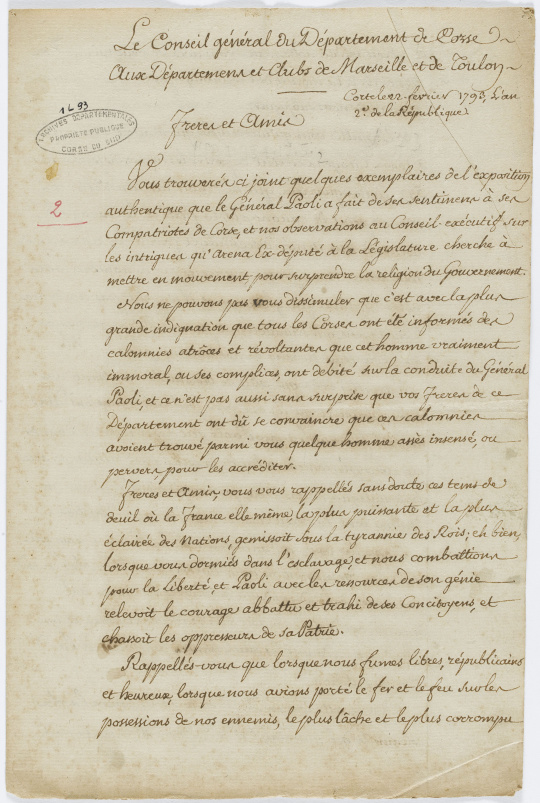 Le Conseil général du Département de Corse
Aux Départemens et Clubs de Marseille et de Toulon
Corte le 22 février 1793, L'an
2e. de la République
1L93
ARCHIVES DÉPARTEMENTALES
PROPRIÉTÉ PUBLIQUE
CORSE DU SUD
Freres et Amis
2
Vous trouverés ci joint quelques exemplaires de l'exposition
authentique que le Général Paoli a fait de ses sentimens à ses
Compatriotes de Corse, et nos observations au Conseil exécutif sur
les intrigues qu'Arena Ex-député à la Législature cherche à
mettre en mouvement pour surprendre la religion du Gouvernement.
Nous ne pouvons pas vous dissimuler que c'est avec la plus
grande indignation que tous les Corses ont été informés des
calomnies atrôces et révoltantes que cet homme vraiment
immoral, ou ses complices, ont débité sur la conduite du Général
Paoli, et ce n'est pas aussi sans surprise que vos Freres de ce
Département ont dû se convaincre que ces calomnies
avoient trouvé parmi vous quelque homme assès insensé, ou
pervers pour les accréditer.
Freres et Amis, vous vous rappellés sans doute ces tems de
deuil où la France elle même, la plus puissante et la plus
éclairée des Nations, gemissoit sous la tyrannie des Rois; eh bien,
lorsque vous dormiés dans l'esclavage, et nous combattions
pour la Liberté, et Paoli avec les ressources de son génie
relevoit le courage abbattu et trahi de ses Concitoyens, et
chassoit les oppresseurs de sa Patrie.
Rappellés-vous que lorsque nous fumes libres, républicains
et heureux, lorsque nous avions porté le fer et le feu sur les
possessions de nos ennemis, le plus lâche et le plus corrompu